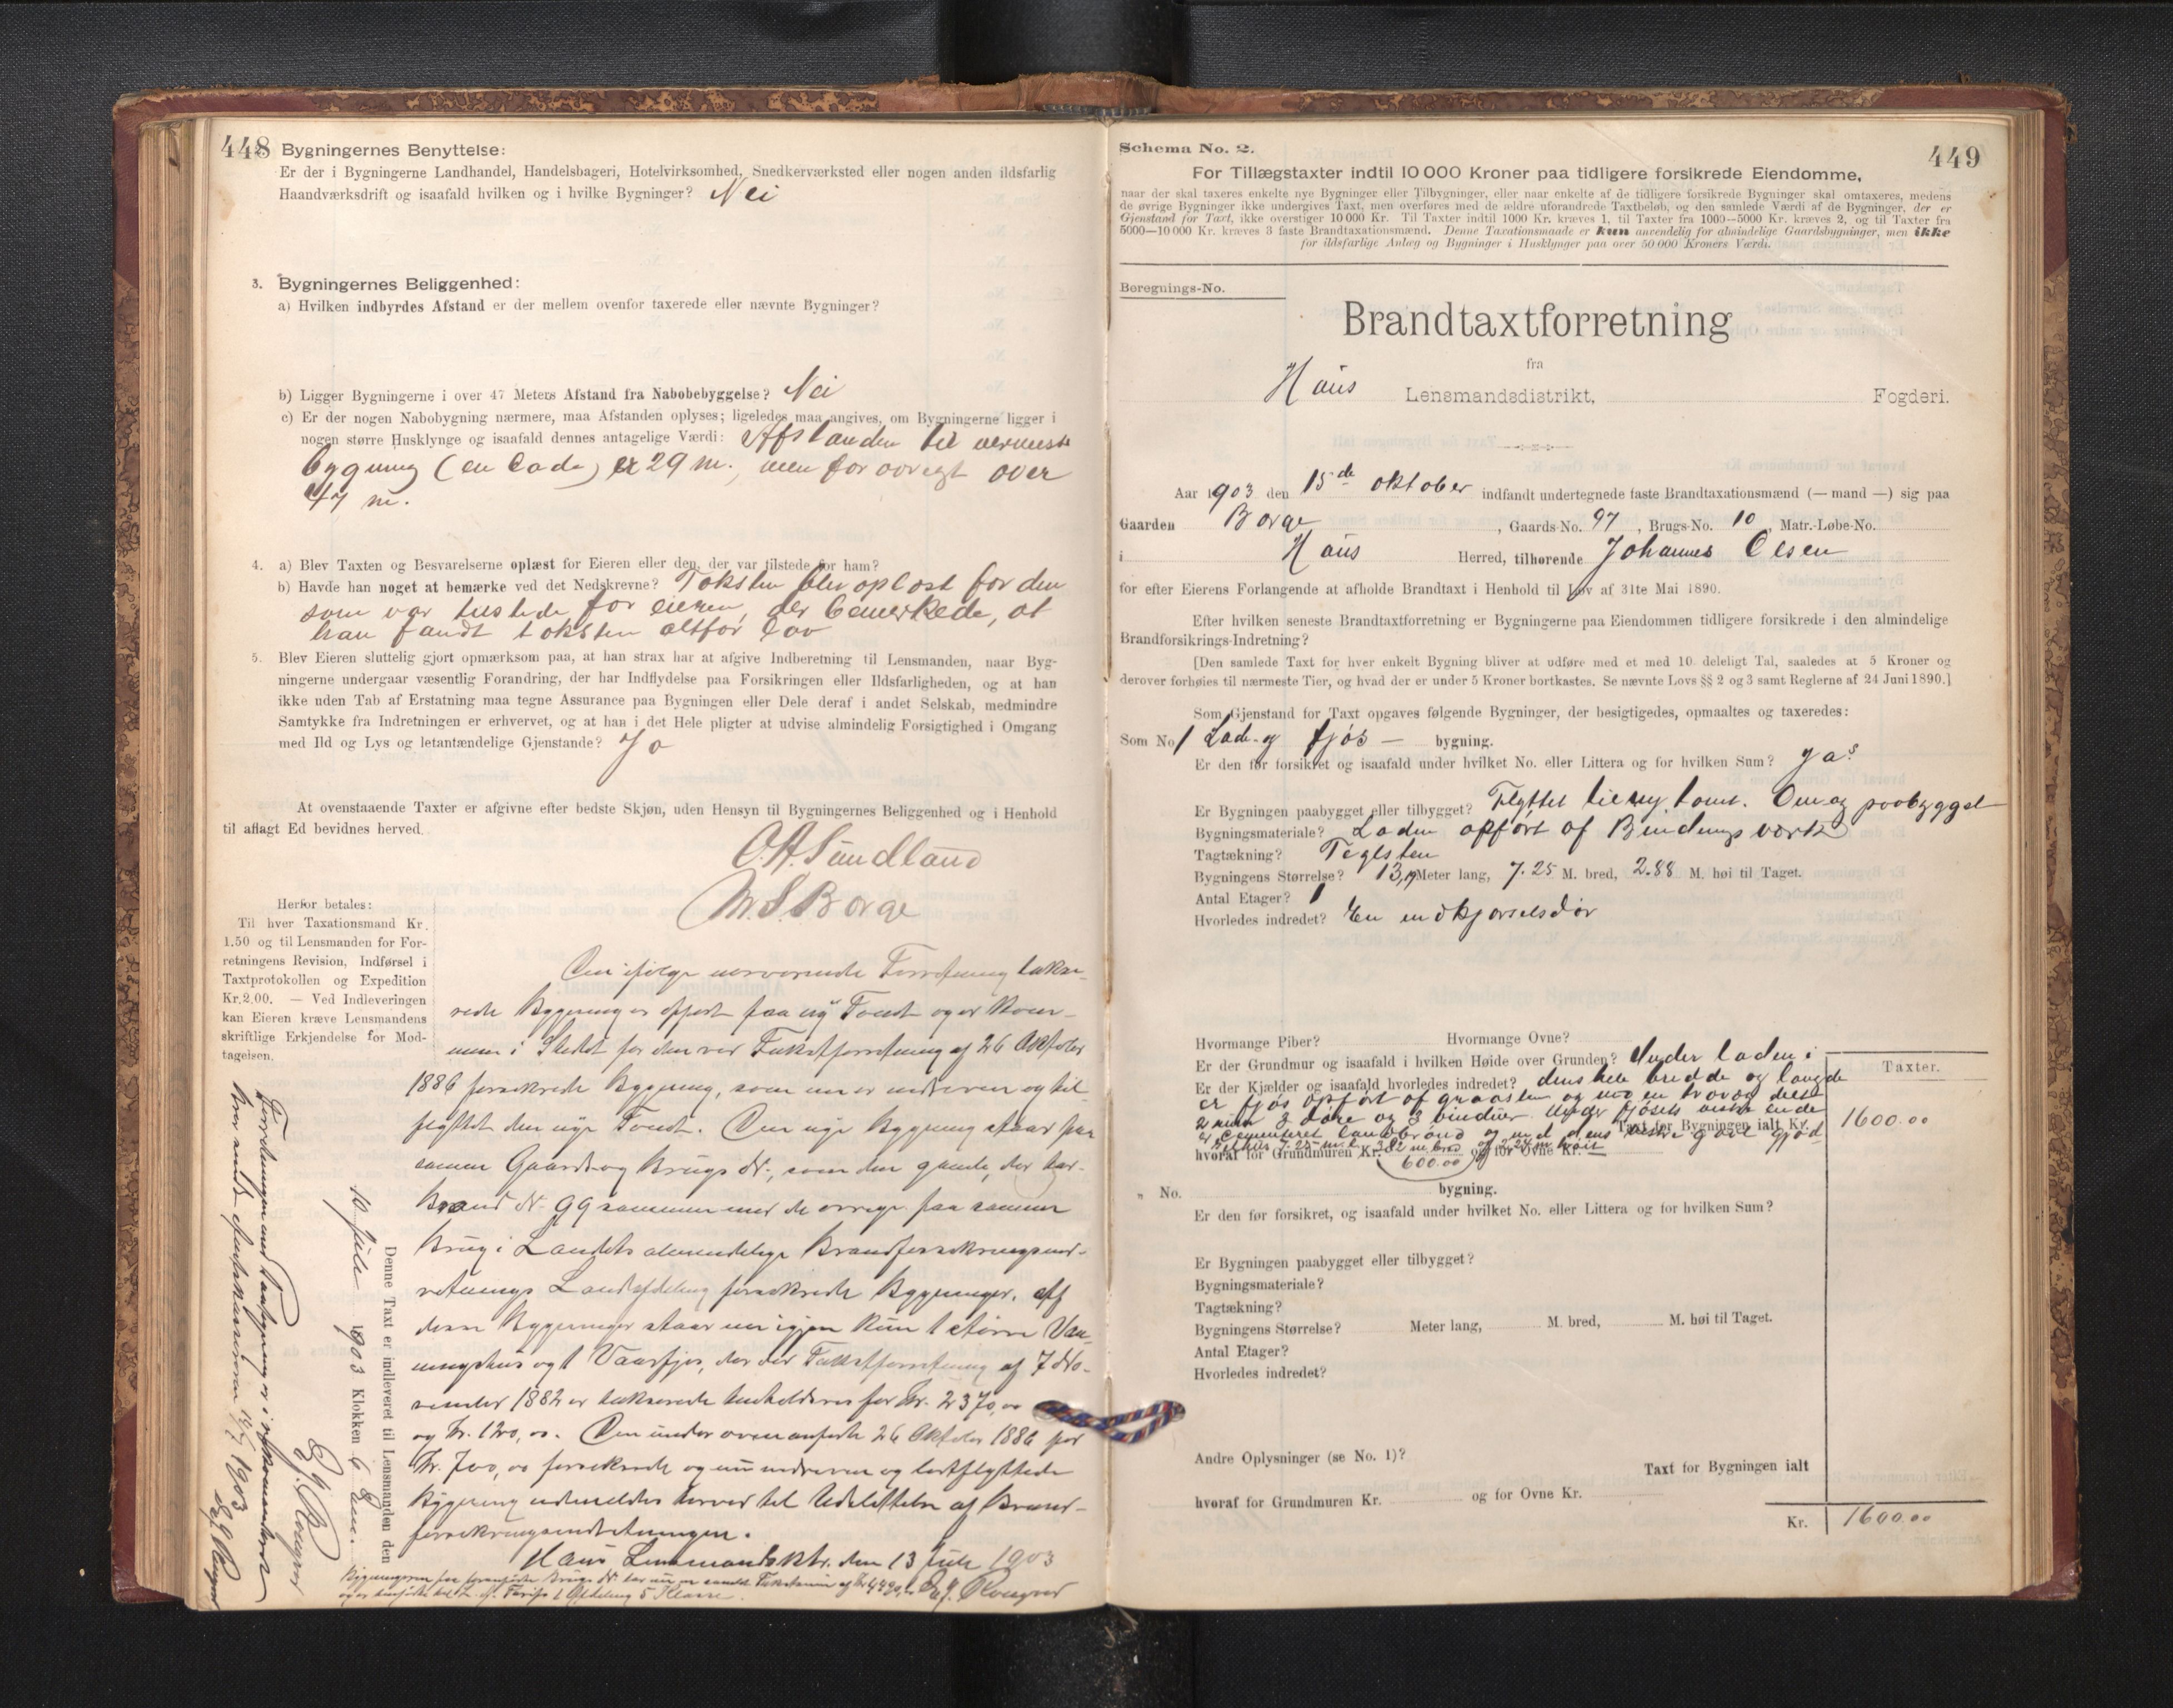 448 Bygningernes Benyttelse:
Er der i Bygningerne Landhandel, Handelsbageri, Hotelvirksomhed, Snedkerværksted eller nogen anden ildsfarlig
Haandværksdrift og isaafald hvilken og i hvilke Bygninger? Nei
3. Bygningernes Beliggenhed:
a) Hvilken indbyrdes Afstand er der mellem ovenfor taxerede eller nævnte Bygninger?
b) Ligger Bygningerne i over 47 Meters Afstand fra Nabobebyggelse? Nei
c) Er der nogen Nabobygning nærmere, maa Afstanden oplyses; ligeledes maa angives, om Bygningerne ligger i
nogen større Husklynge og isaafald dennes antagelige Værdi: Afstanden til nermeste
bygning (en Lade) er 29 m., men forøvrigt over
47 m.
4. a) Blev Taxten og Besvarelserne oplæst for Eieren eller den, der var tilstede for ham?
b) Havde han noget at bemærke ved det Nedskrevne? Taksten blev oplæst for den
som var tilstede for eieren, der bemerkede, at
han fandt taksten altfor lav
5. Blev Eieren sluttelig gjort opmærksom paa, at han strax har at afgive Indberetning til Lensmanden, naar Byg-
ningerne undergaar væsentlig Forandring, der har Indflydelse paa Forsikringen eller Ildsfarligheden, og at han
ikke uden Tab af Erstatning maa tegne Assurance paa Bygningen eller Dele deraf i andet Selskab, medmindre
Samtykke fra Indretningen er erhvervet, og at han i det Hele pligter at udvise almindelig Forsigtighed i Omgang
med Ild og Lys og letantændelige Gjenstande? Ja
At ovenstaaende Taxter er afgivne efter bedste Skjøn, uden Hensyn til Bygningernes Beliggenhed og i Henhold
til aflagt Ed bevidnes herved.
O.A. Sandland
M.S. Borge
Herfor betales:
Til hver Taxationsmand Kr.
1.50 og til Lensmanden for For-
retningens Revision, Indførsel i
Taxtprotokollen og Expedition
Kr. 2.00. — Ved Indleveringen
kan Eieren kræve Lensmandens
skriftlige Erkjendelse for Mod-
tagelsen.
Den ifølge nærværende Forretning takse-
rede Bygning er opført paa ny Tomt og er kom-
men i Stedet for den ved Takstforretning af 26 Oktober
1886 forsikrede Bygning, som nu er nedreven og til
flyttet den nye Tomt. Den nye Bygning staar paa
samme Gaards og Brugs Nr., som den gamle, der har
Brand Nr. 99 sammen med de øvrige paa samme
Brug i Landets almindelige Brandforsikringsind-
retnings Landafdeling forsikrede Bygninger. Af
disse Bygninger staar nu igjen kun 1 større Vaa-
ningshus og 1 Vaarfjøs, der ved Takstforretning af 7 No-
vember 1882 er takserede henholdsvis for Kr. 2370,00
og Kr. 120,00. Den under ovenanførte 26 Oktober 1886 for
Kr. 700,00 forsikrede og nu nedreven og bortflyttede
Bygning udmeldes herved til Udslettelse af Brand-
forsikringsindretningen.
Haus Lensmandsktr. den 13 Juli 1903
Bygningerne paa foranførte Brugs Nr. har nu en samlet Takstsum af Kr
Tarifs 1 Afdeling 5 Klasse.
Denne Taxt er indleveret til Lensmanden den
10 Juli 1903 Klokken 6 Em.
449
Schema No. 2.
For Tillægstaxter indtil 10 000 Kroner paa tidligere forsikrede Eiendomme,
naar der skal taxeres enkelte nye Bygninger eller Tilbygninger, eller naar enkelte af de tidligere forsikrede Bygninger skal omtaxeres, medens
de øvrige Bygninger ikke undergives Taxt, men overføres med de ældre uforandrede Taxtbeløb, og den samlede Værdi af de Bygninger, der er
Gjenstand for Taxt, ikke overstiger 10 000 Kr. Til Taxter indtil 1000 Kr. kræves 1, til Taxter fra 1000—5000 Kr. kræves 2, og til Taxter fra
5000—10 000 Kr. kræves 3 faste Brandtaxationsmænd. Denne Taxationsmaade er kun anvendelig for almindelige Gaardsbygninger, men ikke
for ildsfarlige Anlæg og Bygninger i Husklynger paa over 50 000 Kroners Værdi.
Beregnings-No.
Brandtaxtforretning
fra
Haus Lensmandsdistrikt, Fogderi.
Aar 1903 den 15de oktober indfandt undertegnede faste Brandtaxationsmænd (— mand —) sig paa
Gaarden Borge, Gaards-No. 97, Brugs-No. 10, Matr.-Løbe-No.
i Haus Herred, tilhørende Johannes Olsen
for efter Eierens Forlangende at afholde Brandtaxt i Henhold til Lov af 31te Mai 1890.
Efter hvilken seneste Brandtaxtforretning er Bygningerne paa Eiendommen tidligere forsikrede i den almindelige
Brandforsikrings-Indretning?
[Den samlede Taxt for hver enkelt Bygning bliver at udføre med et med 10 deleligt Tal, saaledes at 5 Kroner og
derover forhøies til nærmeste Tier, og hvad der er under 5 Kroner bortkastes. Se nævnte Lovs §§ 2 og 3 samt Reglerne af 24 Juni 1890.]
Som Gjenstand for Taxt opgaves følgende Bygninger, der besigtigedes, opmaaltes og taxeredes:
Som No 1 Lade- og fjøs — bygning.
Er den før forsikret og isaafald under hvilket No. eller Littera og for hvilken Sum? Ja
Er Bygningen paabygget eller tilbygget? Flyttet til ny tomt. Om og paabygget
Bygningsmateriale? Laden opført af Bindingsværk
Tagtækning? Teglsten
Bygningens Størrelse? 13, Meter lang, 7.25 M. bred, 2.88 M. høi til Taget.
Antal Etager? 1
Hvorledes indredet? En indkjørselsdør
Hvormange Piber? Hvormange Ovne?
Er der Grundmur og isaafald i hvilken Høide over Grunden? Under laden i
Er der Kjælder og isaafald hvorledes indredet? dens hele bredde og længde
er fjøs opført af graasten
3 døre og 3 vinduer. Under fjøsets ende
er Cementeret
Taxter.
Taxt for Bygningen ialt Kr. 1600.00
hvoraf for Grundmuren Kr. 600.00 og for Ovne Kr.
" No. bygning.
Er den før forsikret, og isaafald under hvilket No. eller Littera og for hvilken Sum?
Er Bygningen paabygget eller tilbygget?
Bygningsmateriale?
Tagtækning?
Bygningens Størrelse? Meter lang, M. bred, M. høi til Taget.
Antal Etager?
Hvorledes indredet?
Andre Oplysninger (se No. 1)?
Taxt for Bygningen ialt
hvoraf for Grundmuren Kr. og for Ovne Kr.
Kr. 1600.00